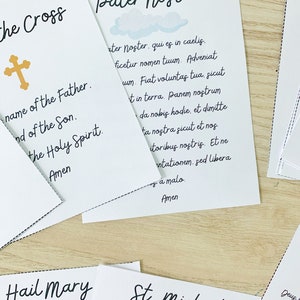 the Cross
name of the Father,
nd of the Son,
the Holy Spirit.
Amen
Pater Nost
ter Noster, qui es in caelis,
ficetur nomen tuum. Adveniat
um. Fiat voluntas tua, sicut
et in terra. Panem nostrum
da nobis hodie, et dimitte
ta nostra sicut et nos
toribus nostris. Et ne
ntationem, sed libera
s a malo.
Amen
Hail Mary
St. Mi